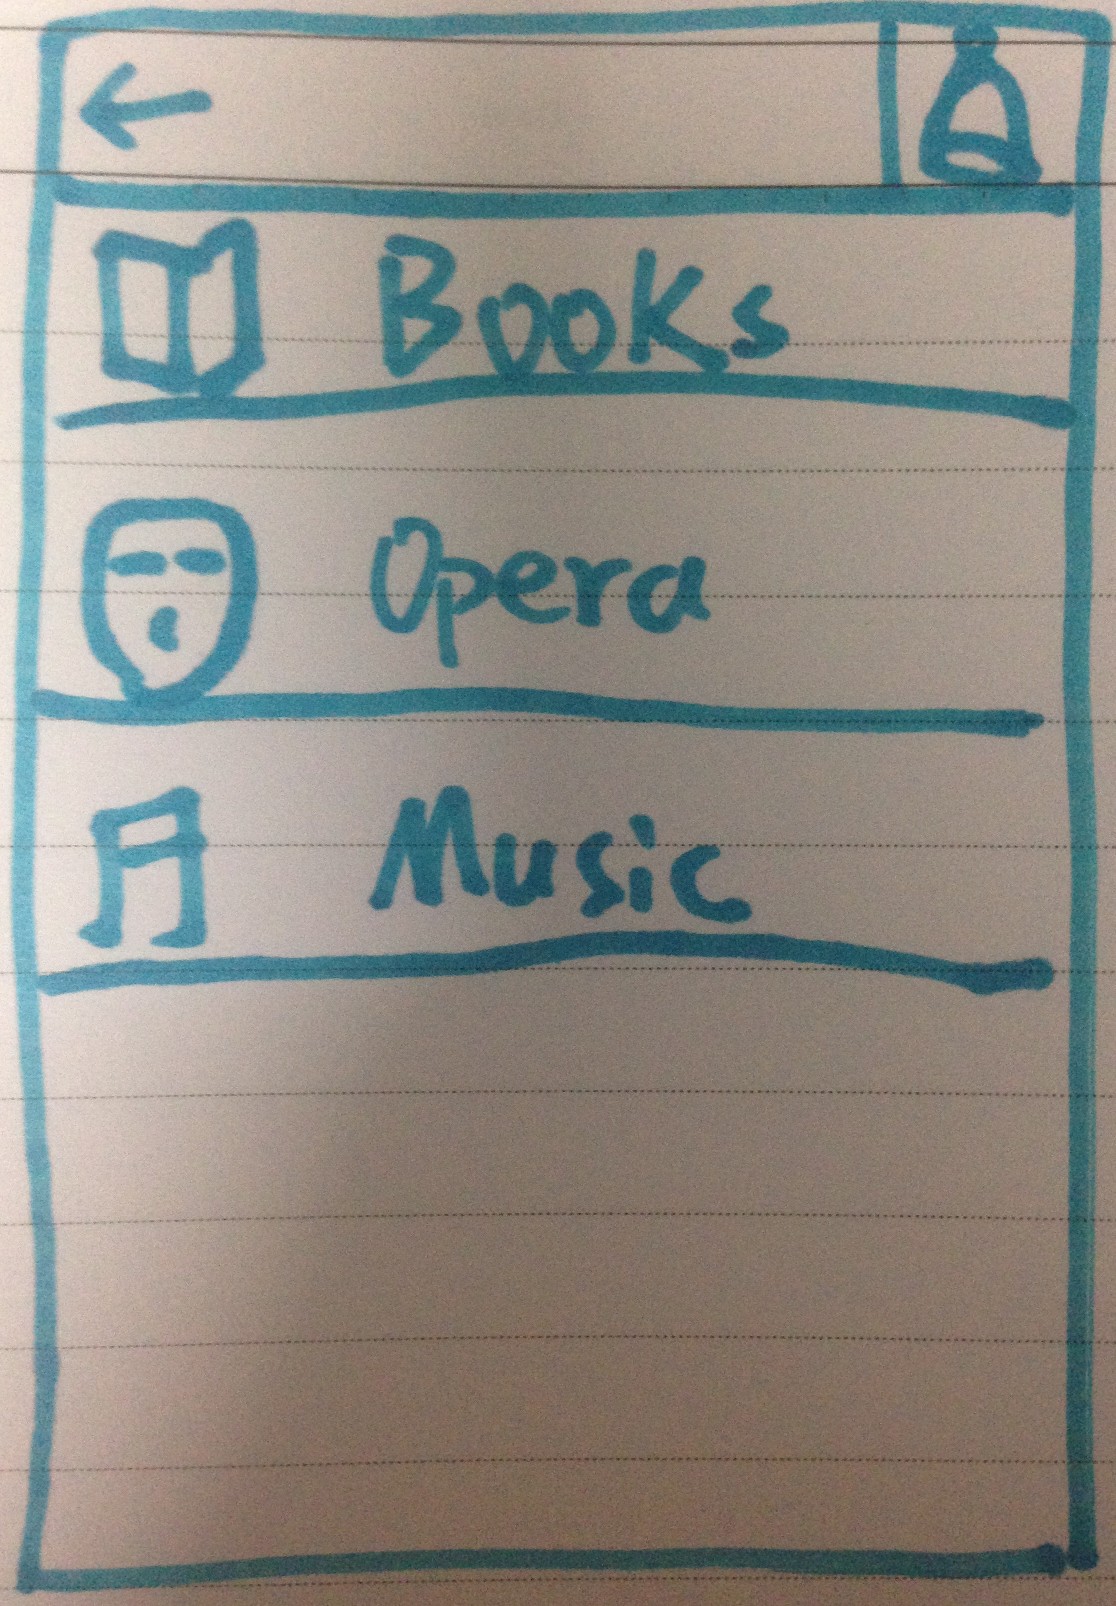 Books
Opera
Music